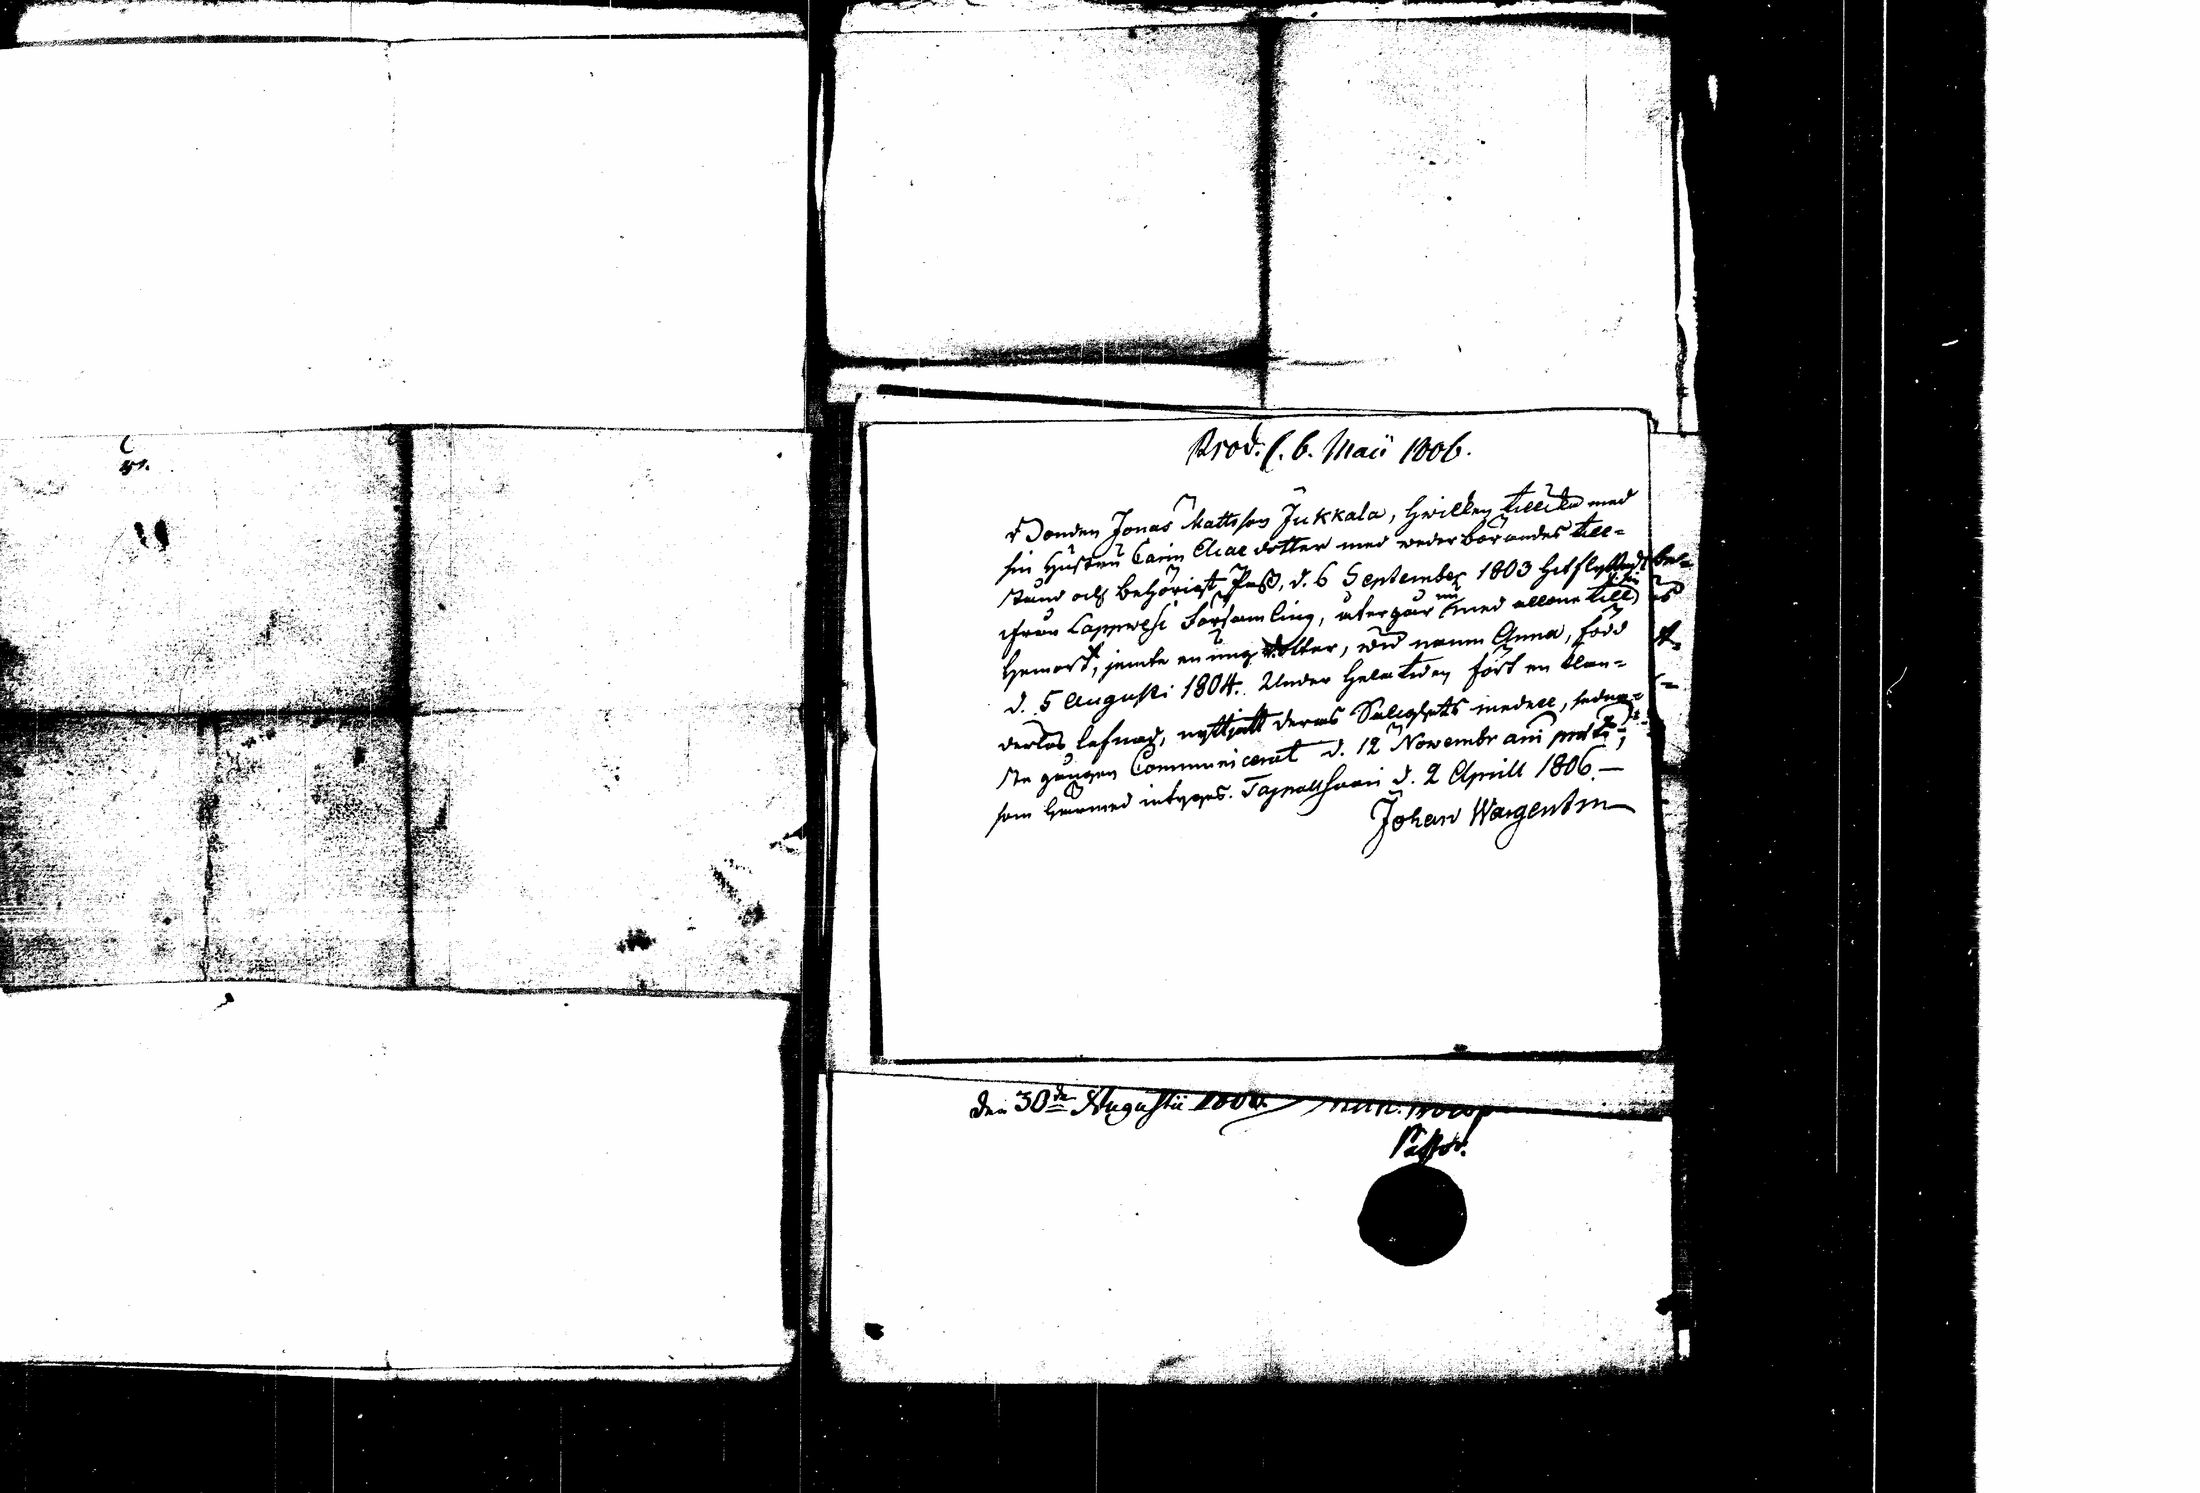 Prod. d. 6. Maii 1806.
Bonden Jonas Mattsson Jukkala, hwilken tillika med
sin Hustru Carin Eliae dotter med wederbörandes till-
stånd och behörigt Pass, d. 6 September 1803 hitflyttadt
ifrån Lappwesi Församling, återgår nu med allone till sin
hemort, jemte en ung dotter, wid namn Anna, född
d. 5 Augusti 1804. Under hela tiden fört en klan-
derlös lefnad, nyttjatt deras Salighets medell, sedna-
ste gången Communicerat d. 12 Novembr ani praet;
som härmed intyges. Taipallsaari d. 2 Aprill 1806.
Johan Wargentin
den 30de Augustii
Pastor.